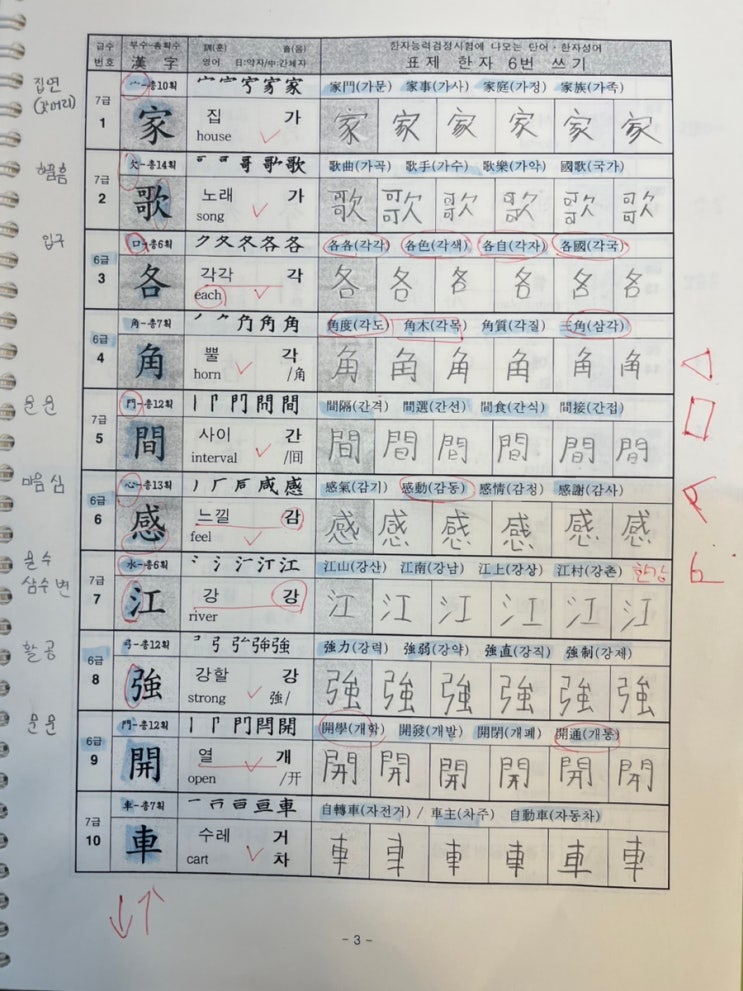 급수 부수-총획수 訓(훈) 음(음) 한자능력검정시험에 나오는 단어·한자성어
번호 漢字 영어 日:약자/中:간체자 표제 한자 6번 쓰기
집면
(갓머리)
7급 宀-총10획 家 家門(가문) 家事(가사) 家庭(가정) 家族(가족)
1 家 집 가 家 家 家 家 家 家
house
하품흠
7급 欠-총14획 哥 歌 歌 歌曲(가곡) 歌手(가수) 歌樂(가악) 國歌(국가)
2 歌 노래 가 歌 歌 歌 歌 歌 歌
song
입구
6급 口-총6획 ク 夂 冬 各 各 各各(각각) 各色(각색) 各自(각자) 各國(각국)
3 各 각각 각 各 各 各 各 各 各
each
6급 角-총7획 角 角 角度(각도) 角木(각목) 角質(각질) 三角(삼각)
4 角 뿔 각 角 角 角 角 角 角
horn /角
문문
7급 門-총12획 門 門 間 間隔(간격) 間選(간선) 間食(간식) 間接(간접)
5 間 사이 간 間 間 間 間 間 間
interval /间
마음심
6급 心-총13획 咸 感 感氣(감기) 感動(감동) 感情(감정) 感謝(감사)
6 感 느낄 감 感 感 感 感 感 感
feel
물수
삼수변
7급 水-총6획 氵 江 江 江山(강산) 江南(강남) 江上(강상) 江村(강촌) 한강
7 江 강 강 江 江 江 江 江 江
river
활궁
6급 弓-총12획 弓 強 強 強力(강력) 強弱(강약) 強直(강직) 強制(강제)
8 強 강할 강 強 強 強 強 強 強
strong 強/
문문
6급 門-총12획 門 開 開 開學(개학) 開發(개발) 開閉(개폐) 開通(개통)
9 開 열 개 開 開 開 開 開 開
open /开
7급 車-총7획 一 車 自轉車(자전거) / 車主(차주) 自動車(자동차)
10 車 수레 거 車 車 車 車 車 車
cart 차
- 3 -